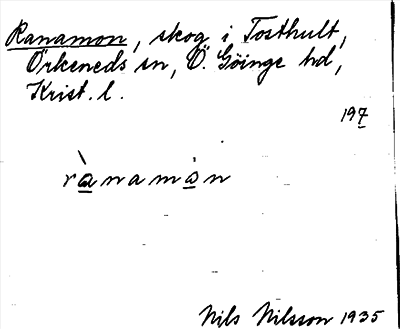 Ranamon, skog i Tosthult,
Örkeneds sn, Ö. Göinge hd,
Krist. l.
197
rànamȧn
Nils Nilsson 1935